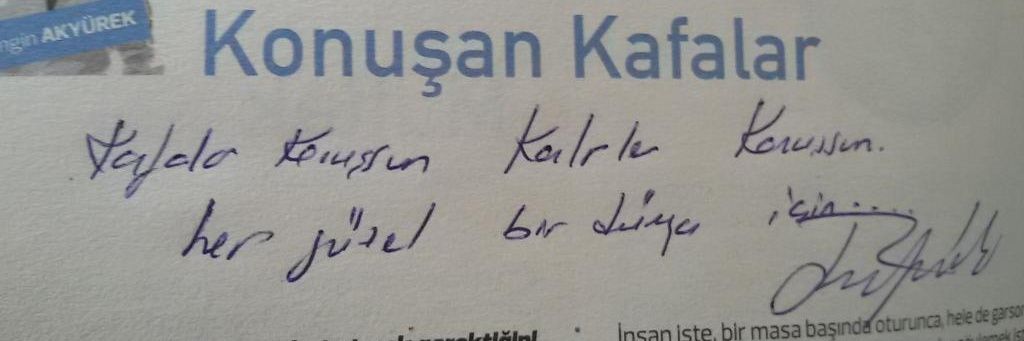 ngin AKYÜREK
Konuşan Kafalar
Kafalar konuşsun Kalpler Konuşsun.
her güzel bir dünya için....
İnsan işte, bir masa başında oturunca, hele de garson